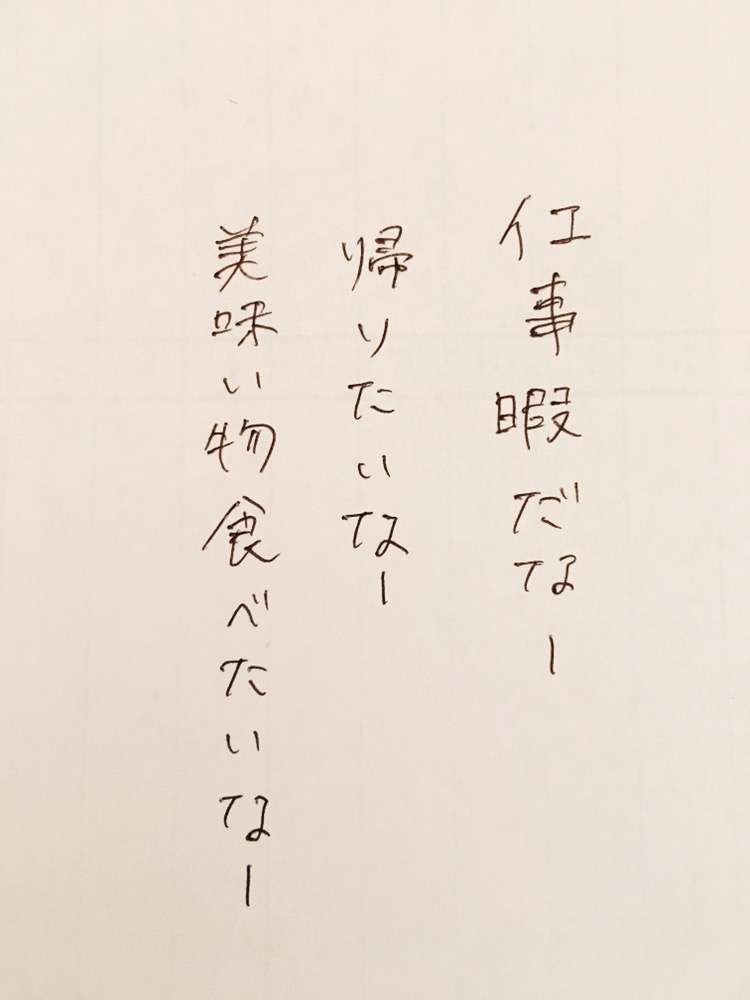 仕事暇だなー
帰りたいなー
美味い物食べたいなー